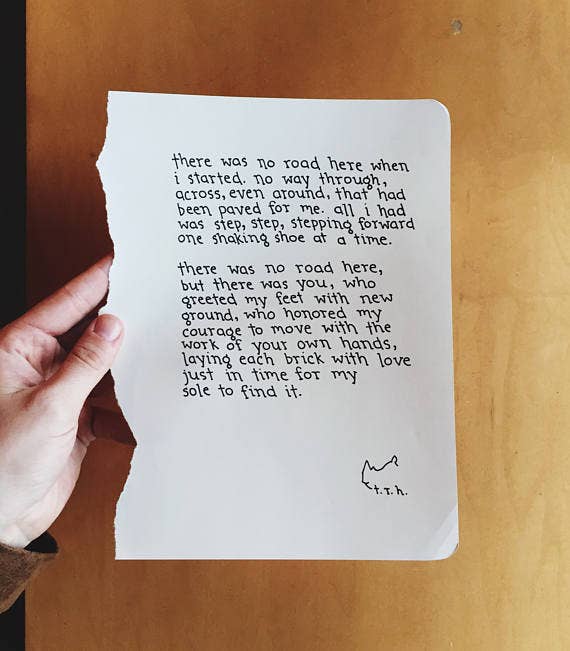 there was no road here when
i started. no way through,
across, even around, that had
been paved for me. all i had
was step, step, stepping forward
one shaking shoe at a time.
there was no road here,
but there was you, who
greeted my feet with new
ground, who honored my
courage to move with the
work of your own hands,
laying each brick with love
just in time for my
sole to find it.
t.r.h.